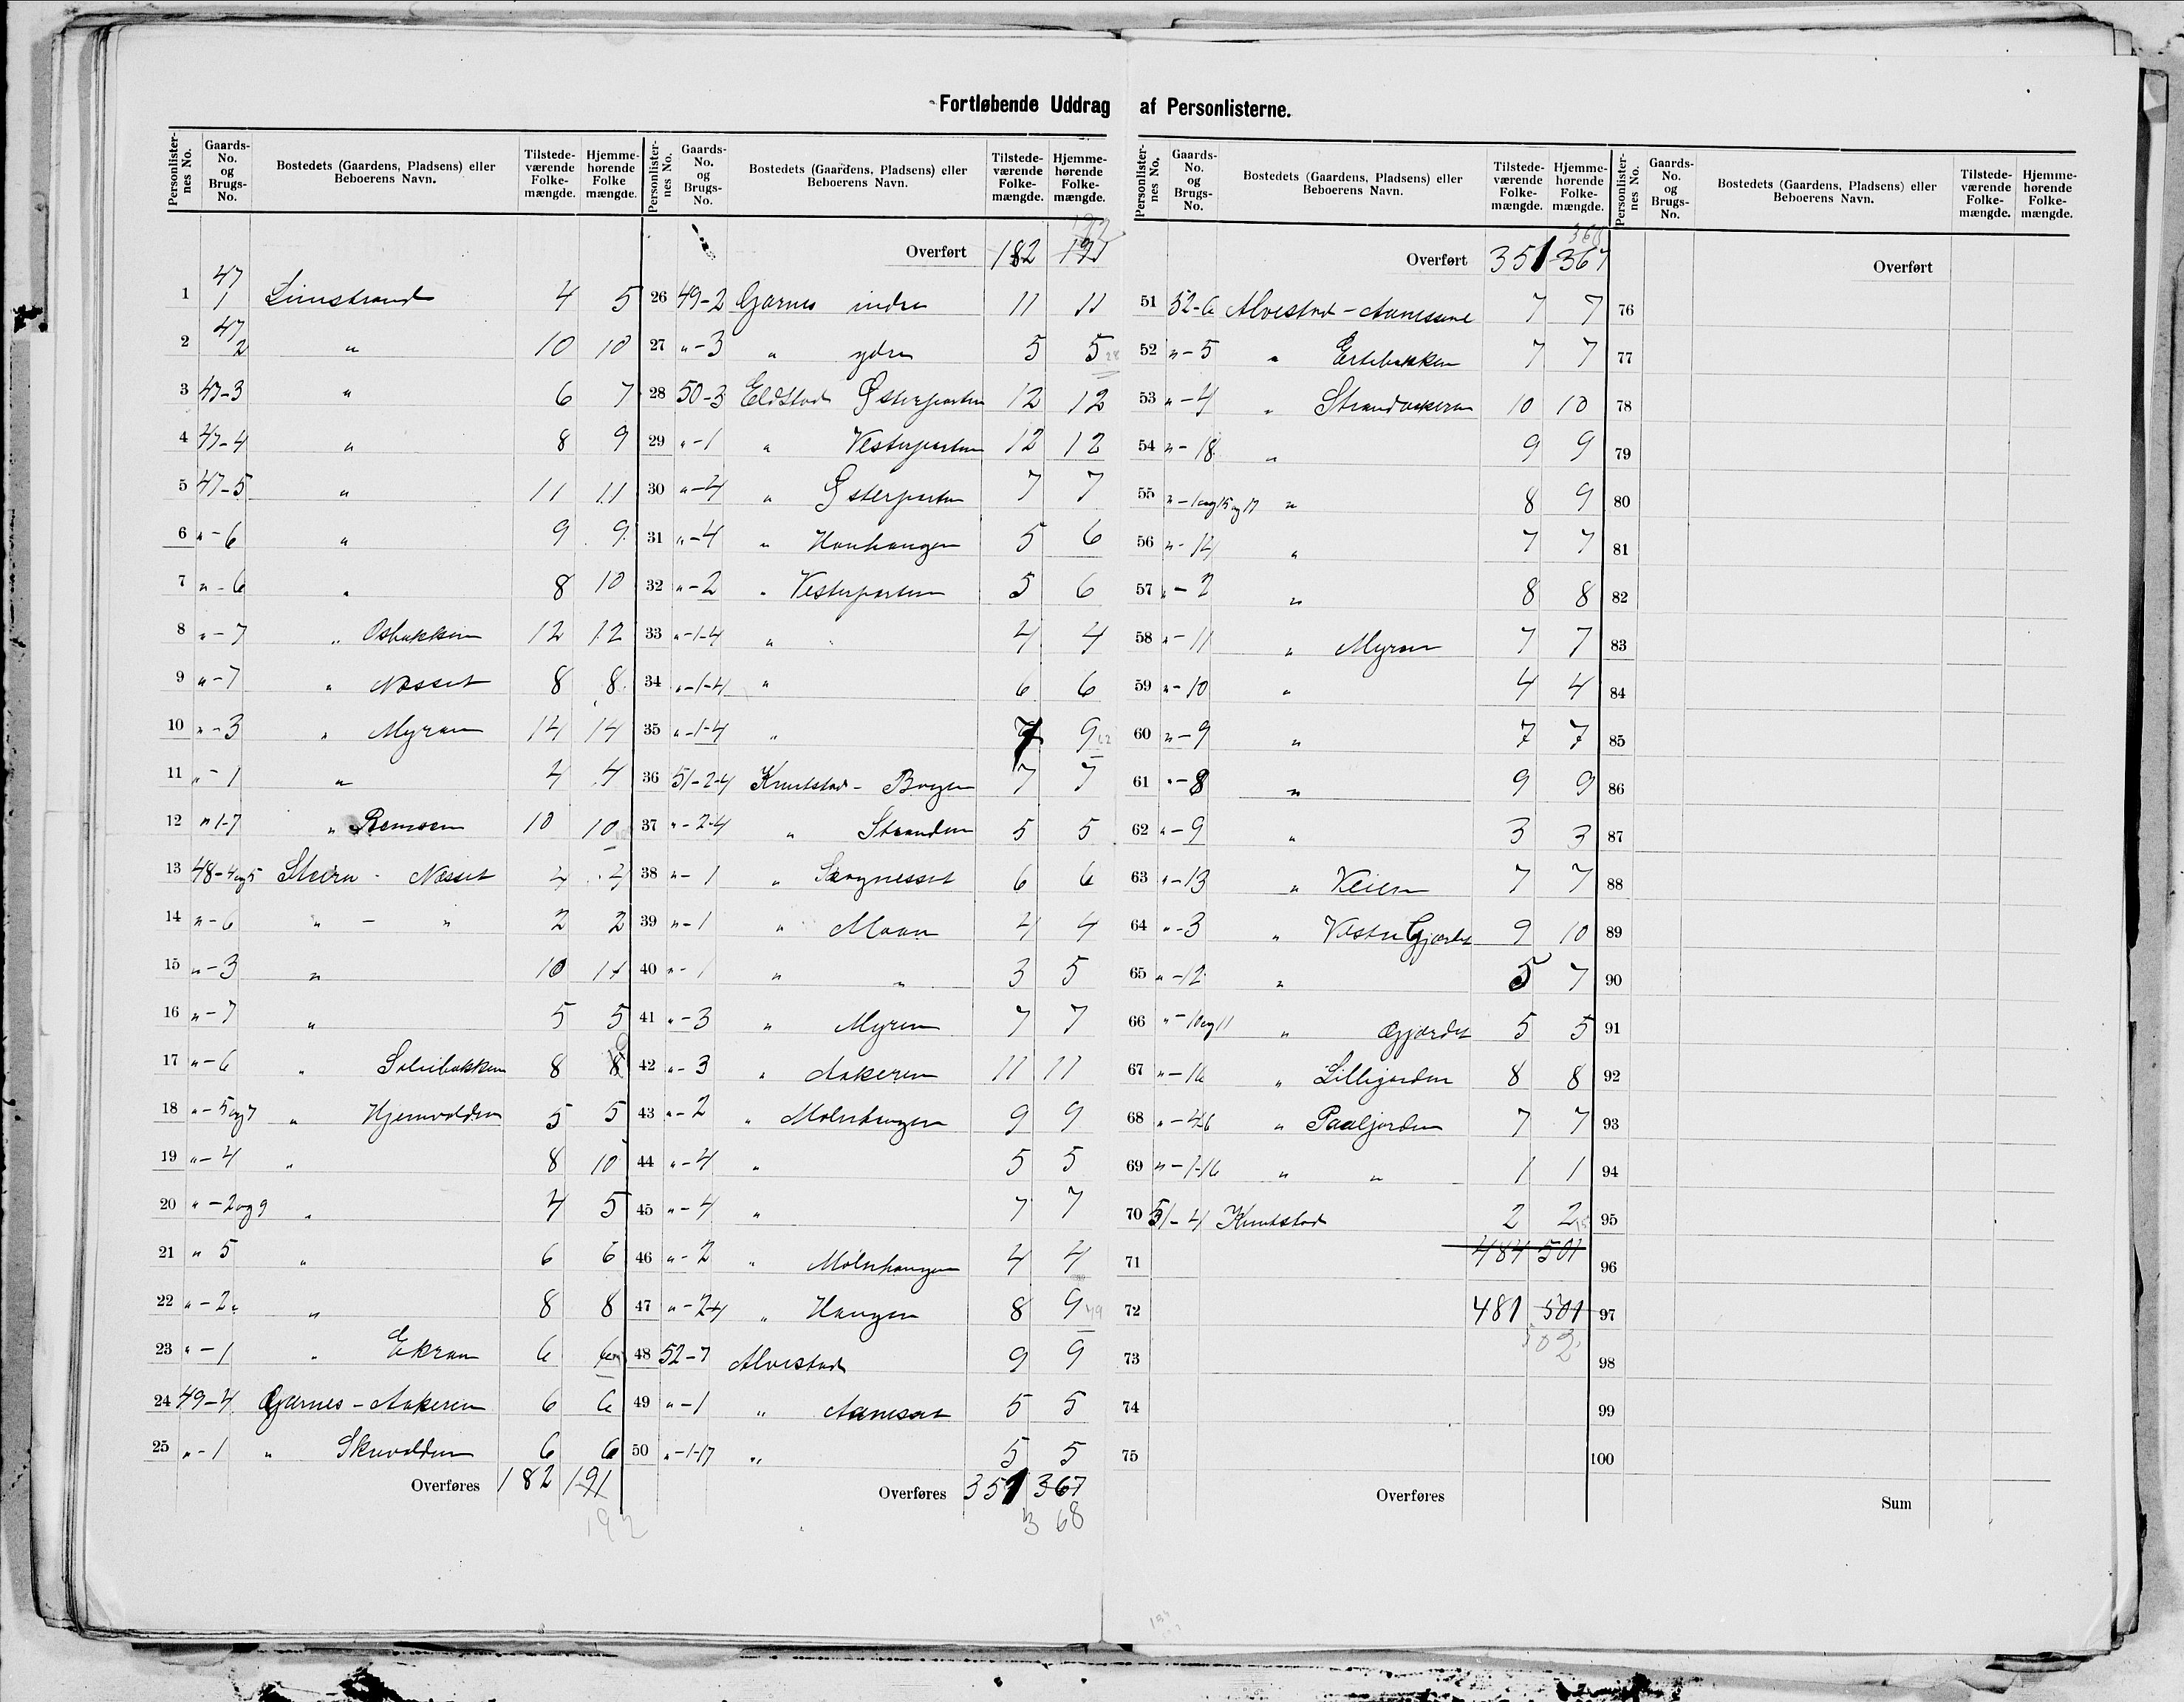 Fortløbende Uddrag af Personlisterne.
Personlister-nes No. Gaards-No. og Brugs-No. Bostedets (Gaardens, Pladsens) eller Beboerens Navn. Tilstede-værende Folke-mængde. Hjemme-hørende Folke mængde.
1 47 1 Limstrand 4 5
2 47 2 " 10 10
3 47-3 " 6 7
4 47-4 " 8 9
5 47-5 " 11 11
6 " - 6 " 9 9
7 " - 6 " 8 10
8 " - 7 " Osbakken 12 12
9 " - 7 " Næsset 8 8
10 " - 3 " Myran 14 14
11 " - 1 " 4 4
12 " 1-7 " Remsen 10 10
13 48-4og5 Steiru - Næsset 4 4
14 " - 6 " - " 2 2
15 " - 3 " 10 11
16 " - 7 " 5 5
17 " - 6 " Solribakken 8 8
18 " - 5og7 " Hjemvolden 5 5
19 " - 4 " 8 10
20 " - 2og9 " 4 5
21 " 5 " 6 6
22 " - 2 " 8 8
23 " - 1 " Ekran 6 6
24 49-4 Garnes - Aakeren 6 6
25 " - 1 " Skrivolden 6 6
Overføres 182 191
192
Personlister-nes No. Gaards-No. og Brugs-No. Bostedets (Gaardens, Pladsens) eller Beboerens Navn. Tilstede-værende Folke-mængde. Hjemme-hørende Folke-mængde.
192
Overført 182 191
26 49-2 Garnes indre 11 11
27 " - 3 " ydre 5 5 28
28 50-3 Eldstad Østerparten 12 12
29 " - 1 " Vesterparten 12 12
30 " - 4 " Østerparten 7 7
31 " - 4 " Hauhaugen 5 6
32 " - 2 " Vesterparten 5 6
33 " - 1-4 " 4 4
34 " - 1-4 " 6 6
35 " - 1-4 " 7 9 62
36 51-2-4 Knutstad - Bogen 7 7
37 " - 2-4 " Stranden 5 5
38 " - 1 " Skognesset 6 6
39 " - 1 " Moan 4 4
40 " - 1 " " 3 5
41 " - 3 " Myren 7 7
42 " - 3 " Aakeren 11 11
43 " - 2 " Molnhaugen 9 9
44 " - 4 " 5 5
45 " - 4 " 7 7
46 " - 2 " Molnhaugen 4 4
47 " - 2-4 " Haugen 8 9 79
48 52-7 Alvestad 9 9
49 " - 1 " Aanesset 5 5
50 " - 1-17 " 5 5
Overføres 351 367
368
Personlister-nes No. Gaards-No. og Brugs-No. Bostedets (Gaardens, Pladsens) eller Beboerens Navn. Tilstede-værende Folke-mængde. Hjemme-hørende Folke-mængde.
368
Overført 351 367
51 52-6 Alvestad - Aanessune 7 7
52 " - 5 " Ertebakken 7 7
53 " - 4 " Strandaakeren 10 10
54 " - 18 " 9 9
55 " - 1og15og17 " 8 9
56 " - 14 " 7 7
57 " - 2 " 8 8
58 " - 11 " Myran 7 7
59 " - 10 " 4 4
60 " - 9 " 7 7
61 " - 8 " 9 9
62 " - 9 " 3 3
63 " - 13 " Veien 7 7
64 " - 3 " Vestre Gjærdet 9 10
65 " - 12 " 5 7
66 " - 10og11 " Gjærdet 5 5
67 " - 16 " Lilligjorden 8 8
68 " - 46 " Paaljorden 7 7
69 " - 1-16 " " 1 1
70 51-4 Knutstad 2 2
71 484 501
72 481 501
502
73
74
75
Overføres
Personlister-nes No. Gaards-No. og Brugs-No. Bostedets (Gaardens, Pladsens) eller Beboerens Navn. Tilstede-værende Folke-mængde. Hjemme-hørende Folke-mængde.
Overført
76
77
78
79
80
81
82
83
84
85
86
87
88
89
90
91
92
93
94
95
96
97
98
99
100
Sum